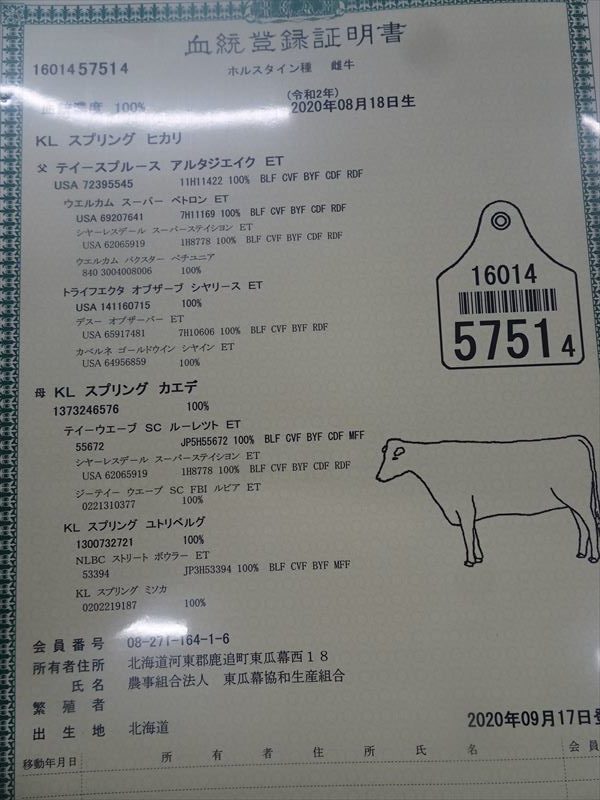 血統登録証明書
1601457514
ホルスタイン種 雌牛
100%
(令和2年)
2020年08月18日生
KL スプリング ヒカリ
父 テイースプルース アルタジエイク ET
USA 72395545 11H11422 100% BLF CVF BYF CDF RDF
ウエルカム スーパー ペトロン ET
USA 69207641 7H11169 100% BLF CVF BYF CDF RDF
シヤーレスデール スーパーステイシヨン ET
USA 62065919 1H8778 100% BLF CVF BYF CDF RDF
ウエルカム バクスター ペチユニア
840 3004008006 100%
トライフエクタ オブザーブ シヤリース ET
USA 141160715 100%
デスー オブザーバー ET
USA 65917481 7H10606 100% BLF CVF BYF RDF
カベルネ ゴールドウイン シヤイン ET
USA 64956859 100%
16014
57514
母 KL スプリング カエデ
1373246576 100%
テイーウエーブ SC ルーレツト ET
55672 JP5H55672 100% BLF CVF BYF CDF MFF
シヤーレスデール スーパーステイシヨン ET
USA 62065919 1H8778 100% BLF CVF BYF CDF RDF
ジーテイー ウエーブ SC FBI ルビア ET
0221310377 100%
KL スプリング ユトリベルグ
1300732721 100%
NLBC ストリート ボウラー ET
53394 JP3H53394 100% BLF CVF BYF MFF
KL スプリング ミソカ
0202219187 100%
会員番号 08-271-164-1-6
所有者住所 北海道河東郡鹿追町東瓜幕西18
氏名 農事組合法人 東瓜幕協和生産組合
繁殖者
出生地 北海道
2020年09月17日登
移動年月日 所有者住所氏名 会員